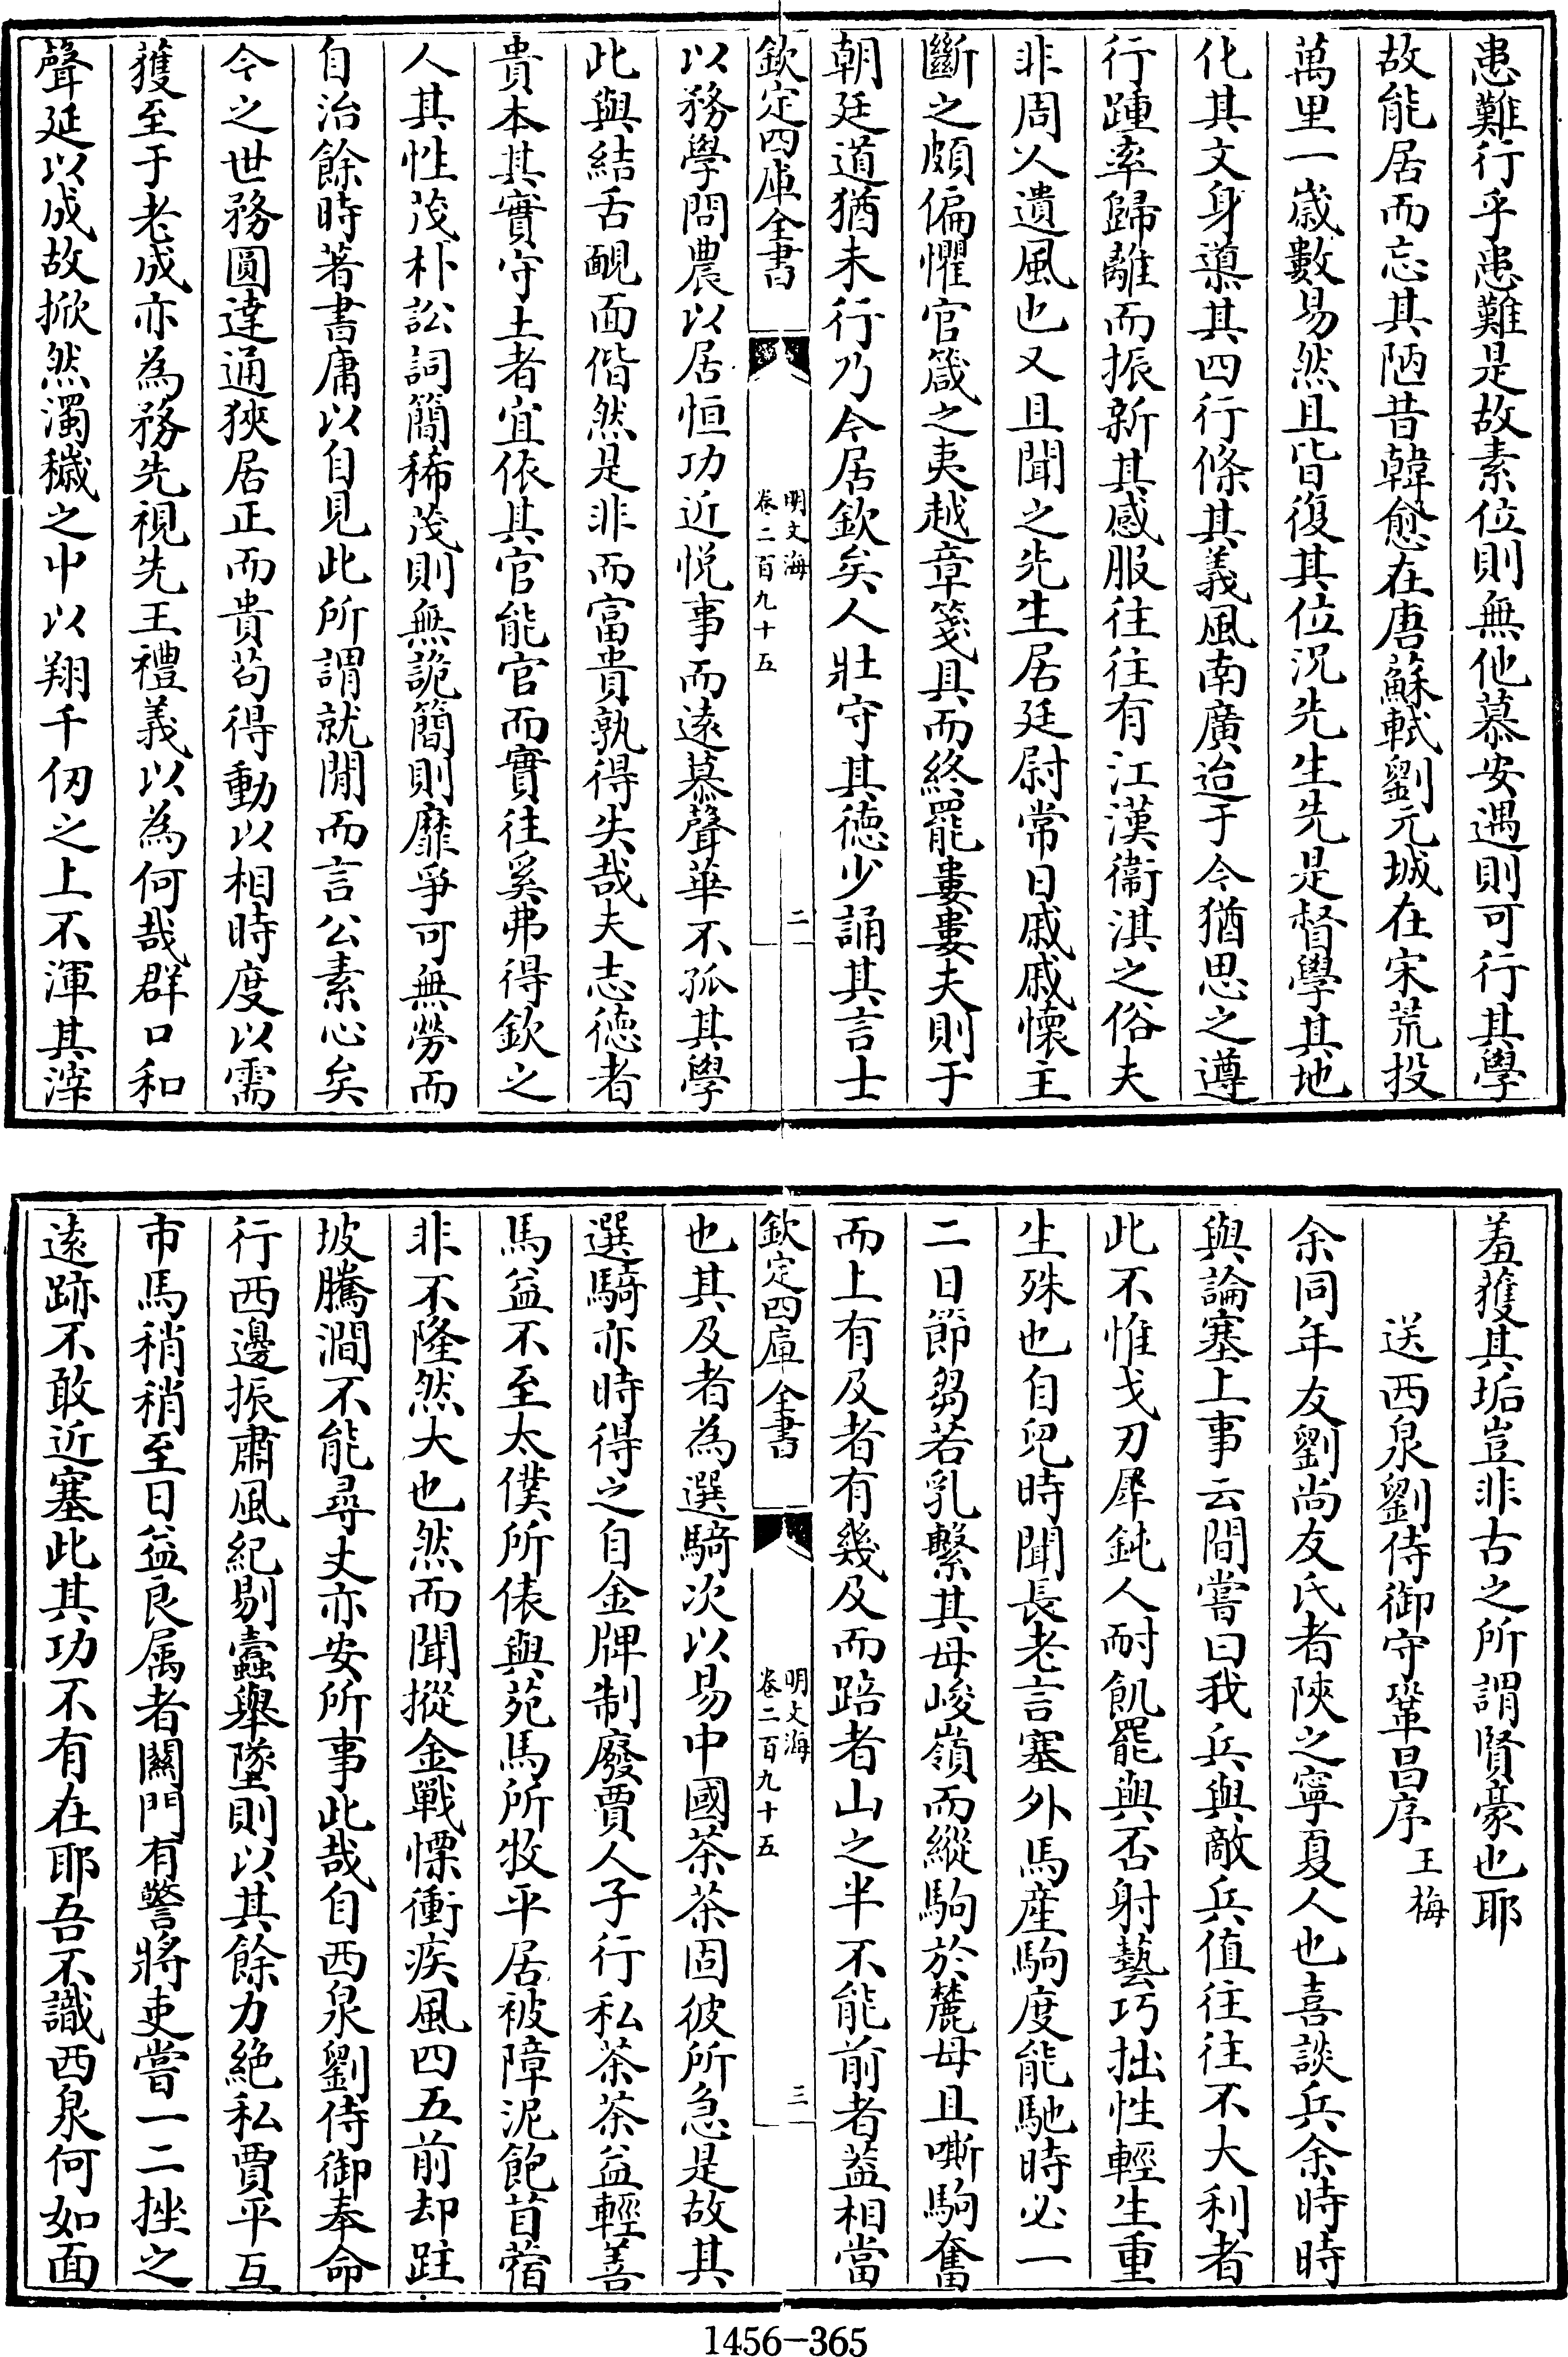 患難行乎患難是故素位則無他慕安遇則可行其學
故能居而忘其陋昔韓愈在唐蘇軾劉元城在宋荒投
萬里一嵗數易然且皆復其位況先生先是督學其地
化其文身導其四行條其義風南廣迨于今猶思之遵
行踵率歸離而振新其感服往往有江漢衞淇之俗夫
非周人遺風也又且聞之先生居廷尉常日戚戚懷王
斷之頗偏懼官箴之夷越章箋具而終罷婁婁夫則于
朝廷道猶未行乃今居欽矣人壯守其徳少誦其言士
欽定四庫全書
明文海
卷二百九十五
二
以務學問農以居恒功近悅事而遠慕聲華不孤其學
此與結舌靦面偕然是非而富貴孰得失哉夫志徳者
貴本其實守土者宜依其官能官而實往奚弗得欽之
人其性茂朴訟詞簡稀茂則無詭簡則靡爭可無勞而
自治餘時著書庸以自見此所謂就閒而言公素心矣
今之世務圓達通狹居正而貴茍得動以相時度以需
獲至于老成亦為務先視先王禮義以為何哉群口和
聲延以成故掀然濁穢之中以翔千仞之上不渾其滓
羞獲其垢豈非古之所謂賢豪也耶
送西泉劉侍御守鞏昌序 王梅
余同年友劉尚友氏者陝之寧夏人也喜談兵余時時
與論塞上事云間嘗曰我兵與敵兵值往往不大利者
此不惟戈刃犀鈍人耐飢罷與否射藝巧拙性輕生重
生殊也自兒時聞長老言塞外馬産駒度能馳時必一
二日節芻若乳繫其母峻嶺而縱駒於麓母且嘶駒奮
而上有及者有幾及而踣者山之半不能前者葢相當
欽定四庫全書
明文海
卷二百九十五
三
也其及者為選騎次以易中國茶茶固彼所急是故其
選騎亦時得之自金牌制廢賈人子行私茶茶益輕善
馬益不至太僕所俵與苑馬所牧平居被障泥飽苜蓿
非不隆然大也然而聞摐金戰慄衝疾風四五前却跬
坡騰澗不能尋丈亦安所事此哉自西泉劉侍御奉命
行西邊振肅風紀剔蠧舉墜則以其餘力絶私賈平互
市馬稍稍至日益良属者闗門有警將吏嘗一二挫之
遠跡不敢近塞此其功不有在耶吾不識西泉何如面
1456-365